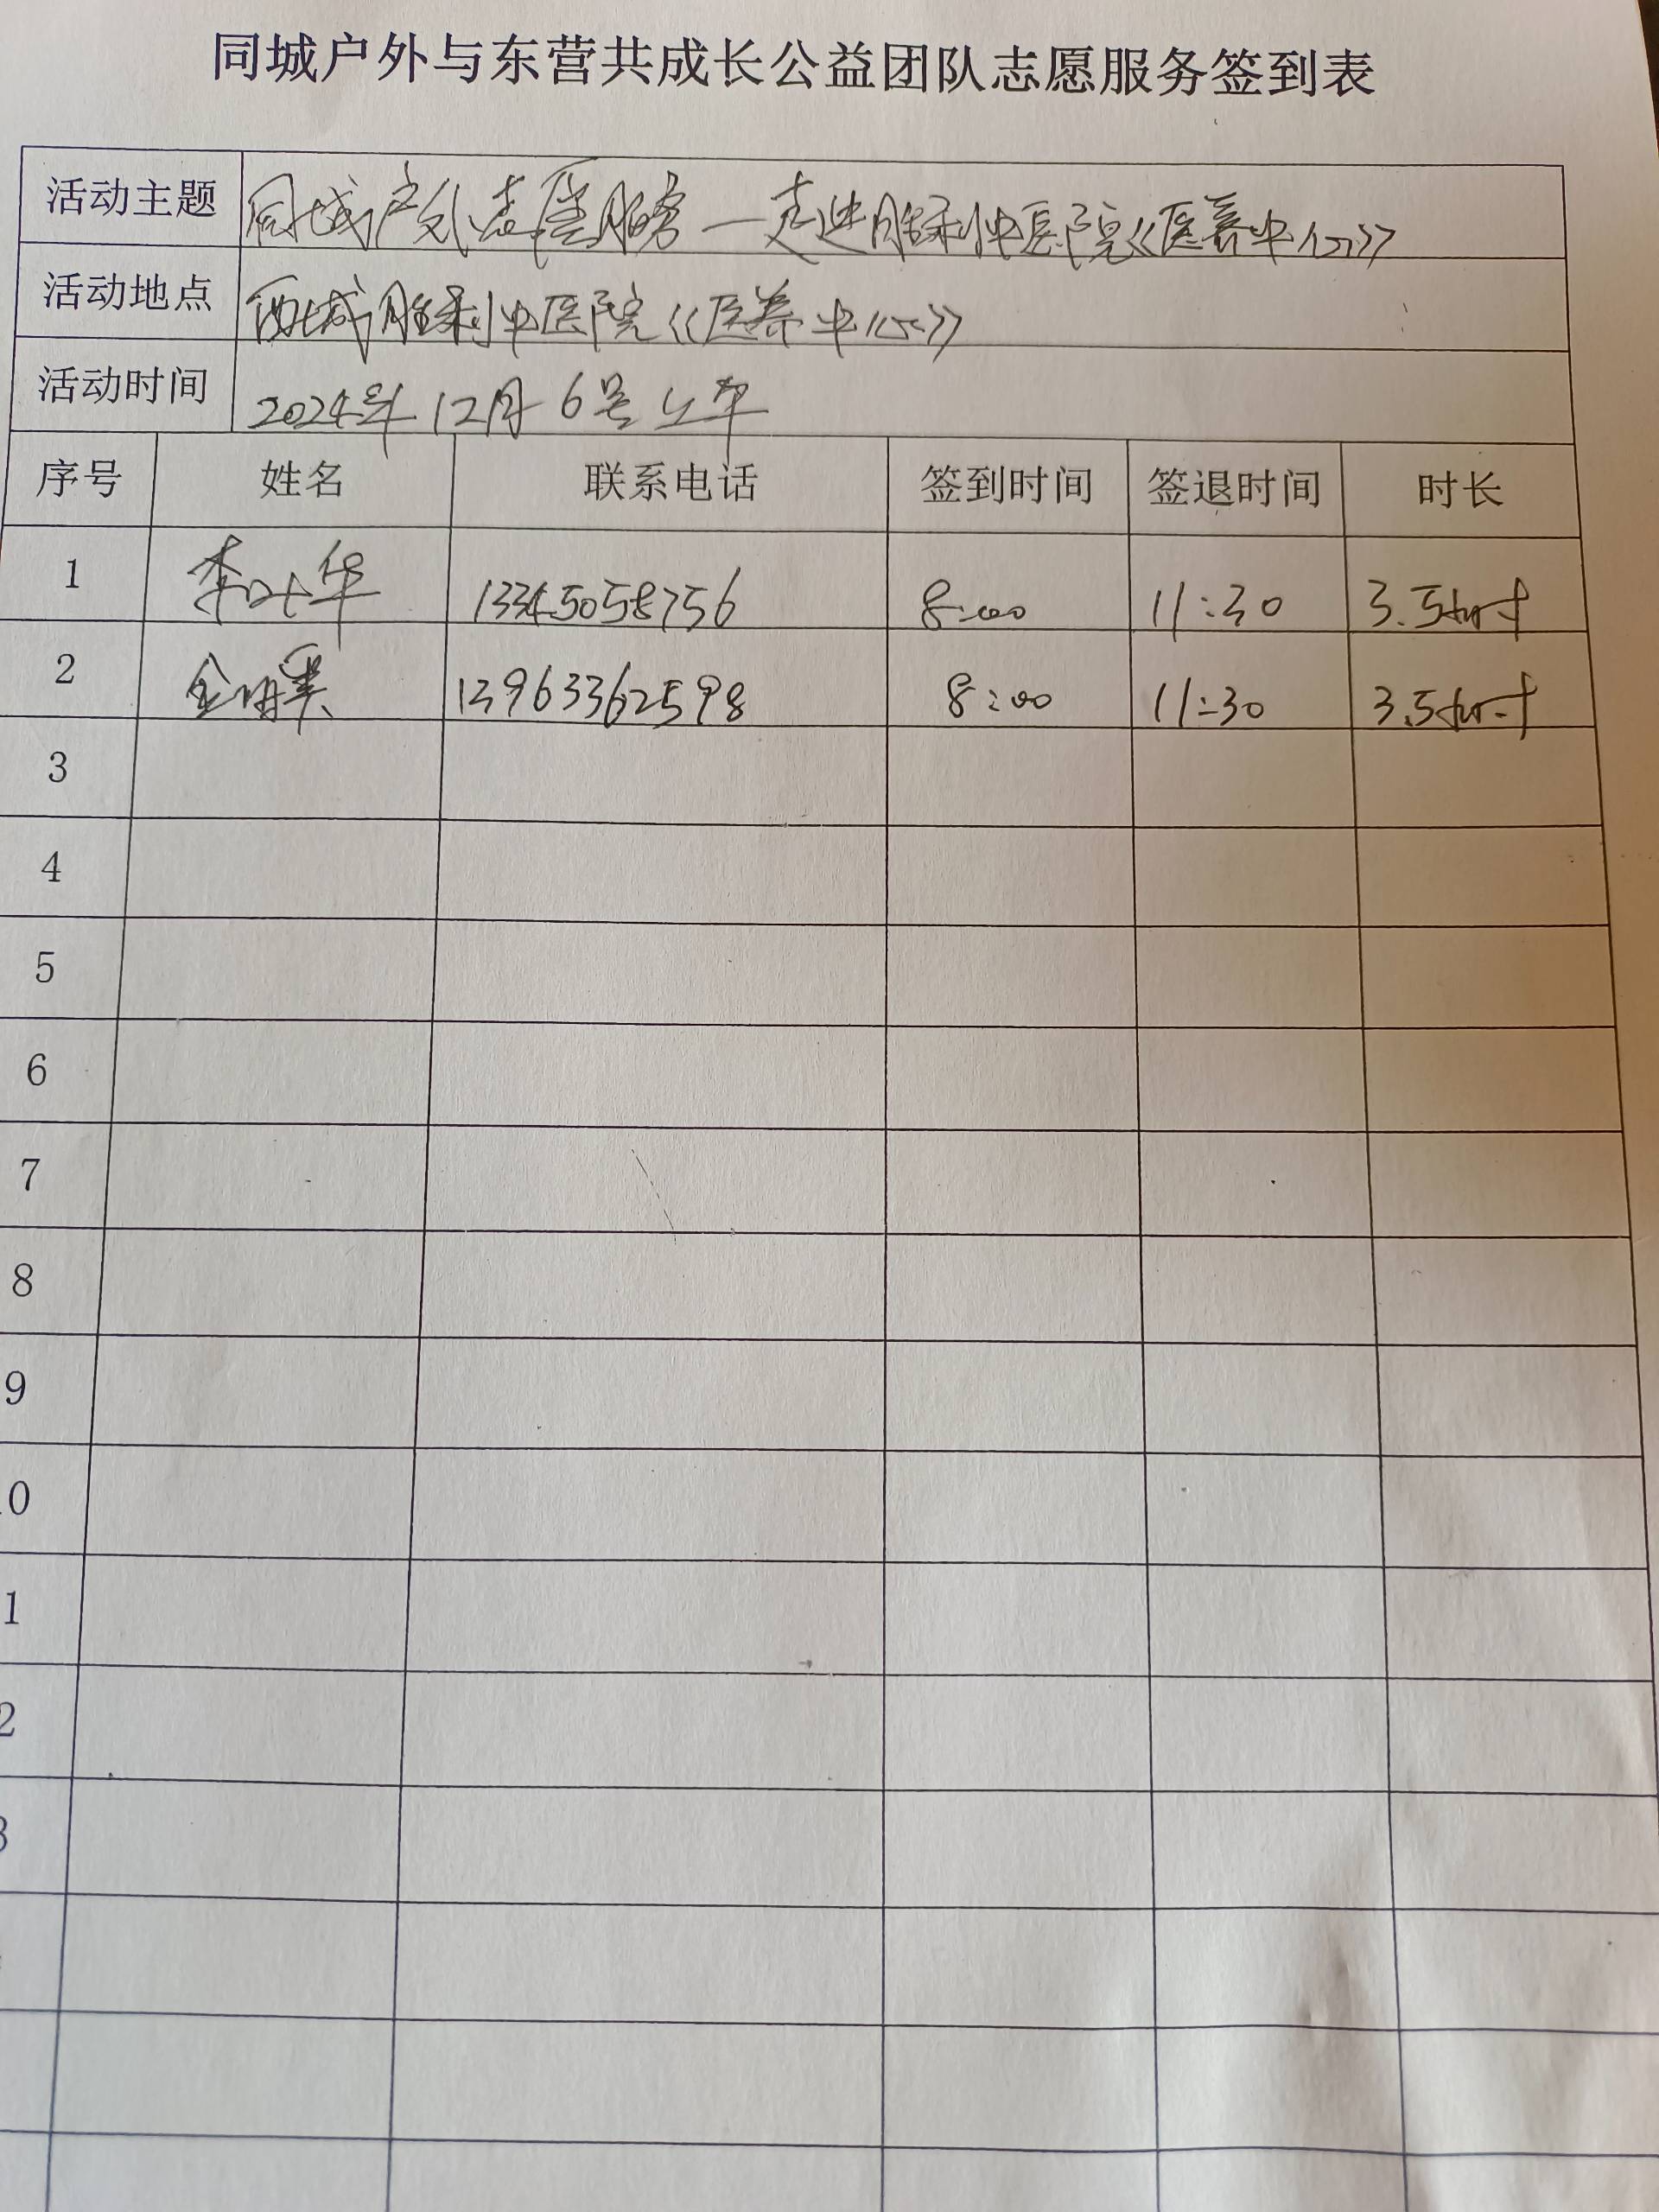 同城户外与东营共成长公益团队志愿服务签到表
活动主题 同城户外志愿服务—走进胜利中医院《医养中心》
活动地点 西城胜利中医院《医养中心》
活动时间 2024年12月6号上午
序号 姓名 联系电话 签到时间 签退时间 时长
1 李叶华 13345058756 8:00 11:30 3.5小时
2 13963362598 8:00 11:30 3.5小时
3
4
5
6
7
8
9
0
1
2
3